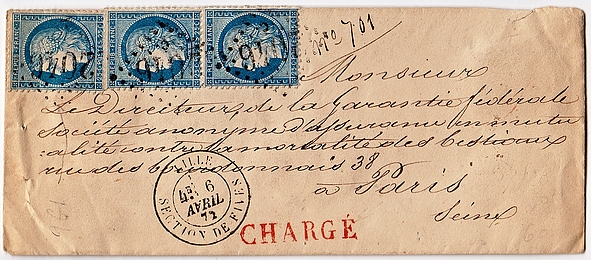 N° 701
Monsieur
Le Directeur de la Garantie fédérale
Société anonyme d'assurance
contre la mortalité des bestiaux
rue des bourdonnais 38
à Paris
Seine
LILLE
6
AVRIL
72
SECTION DE FIVES
CHARGÉ